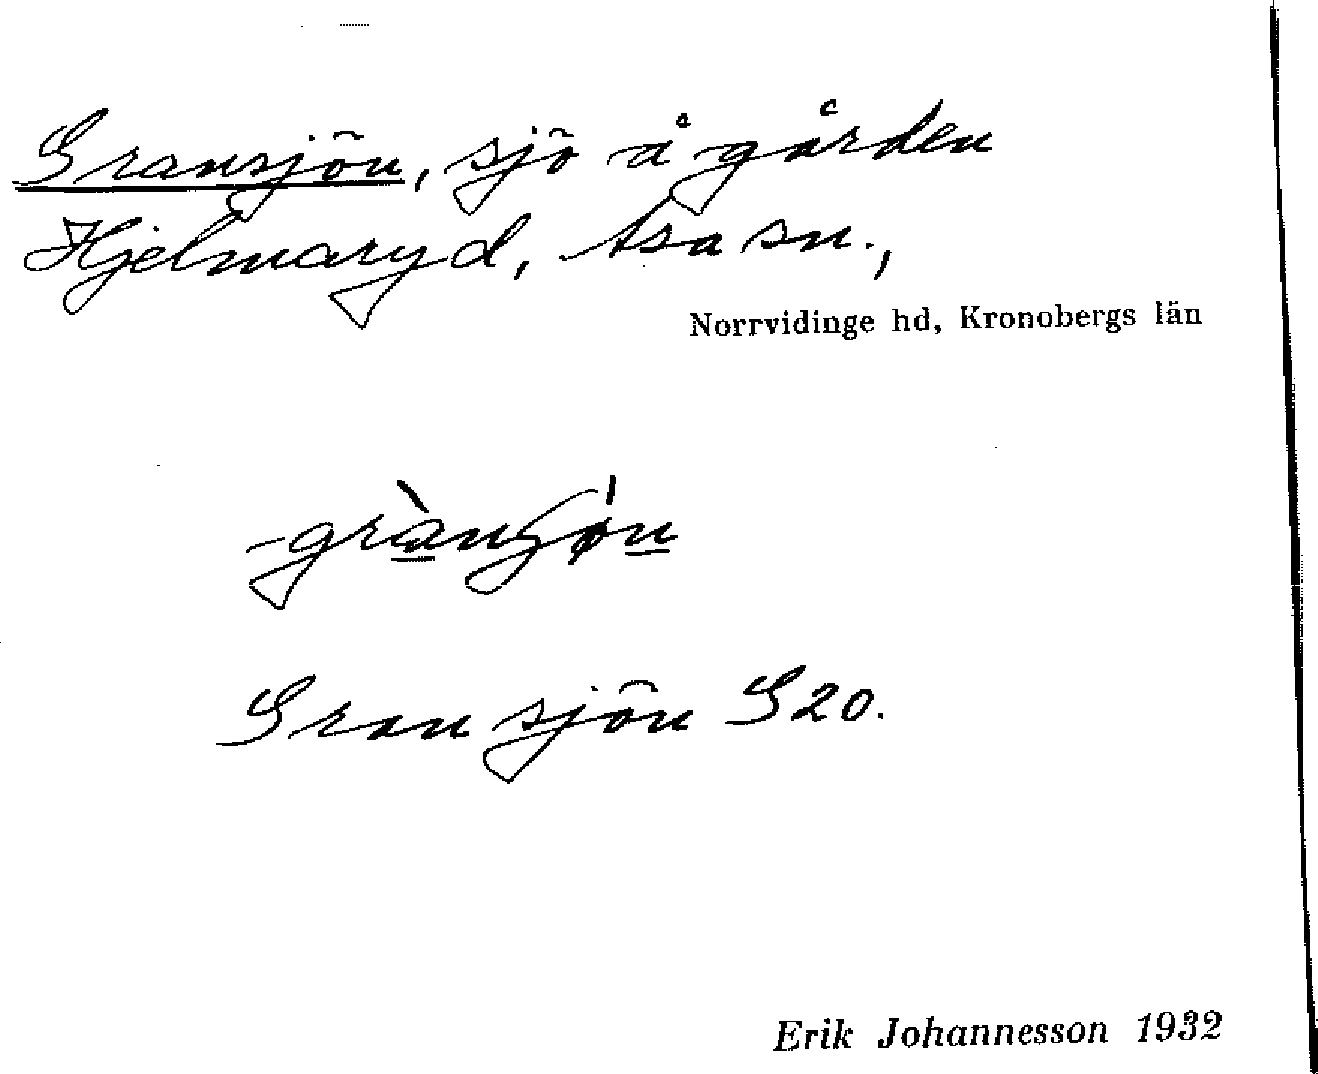 Gransjön, sjö å gården
Hjelmaryd, Asa sn.,
Norrvidinge hd, Kronobergs län
Gransjön G20.
Erik Johannesson 1932